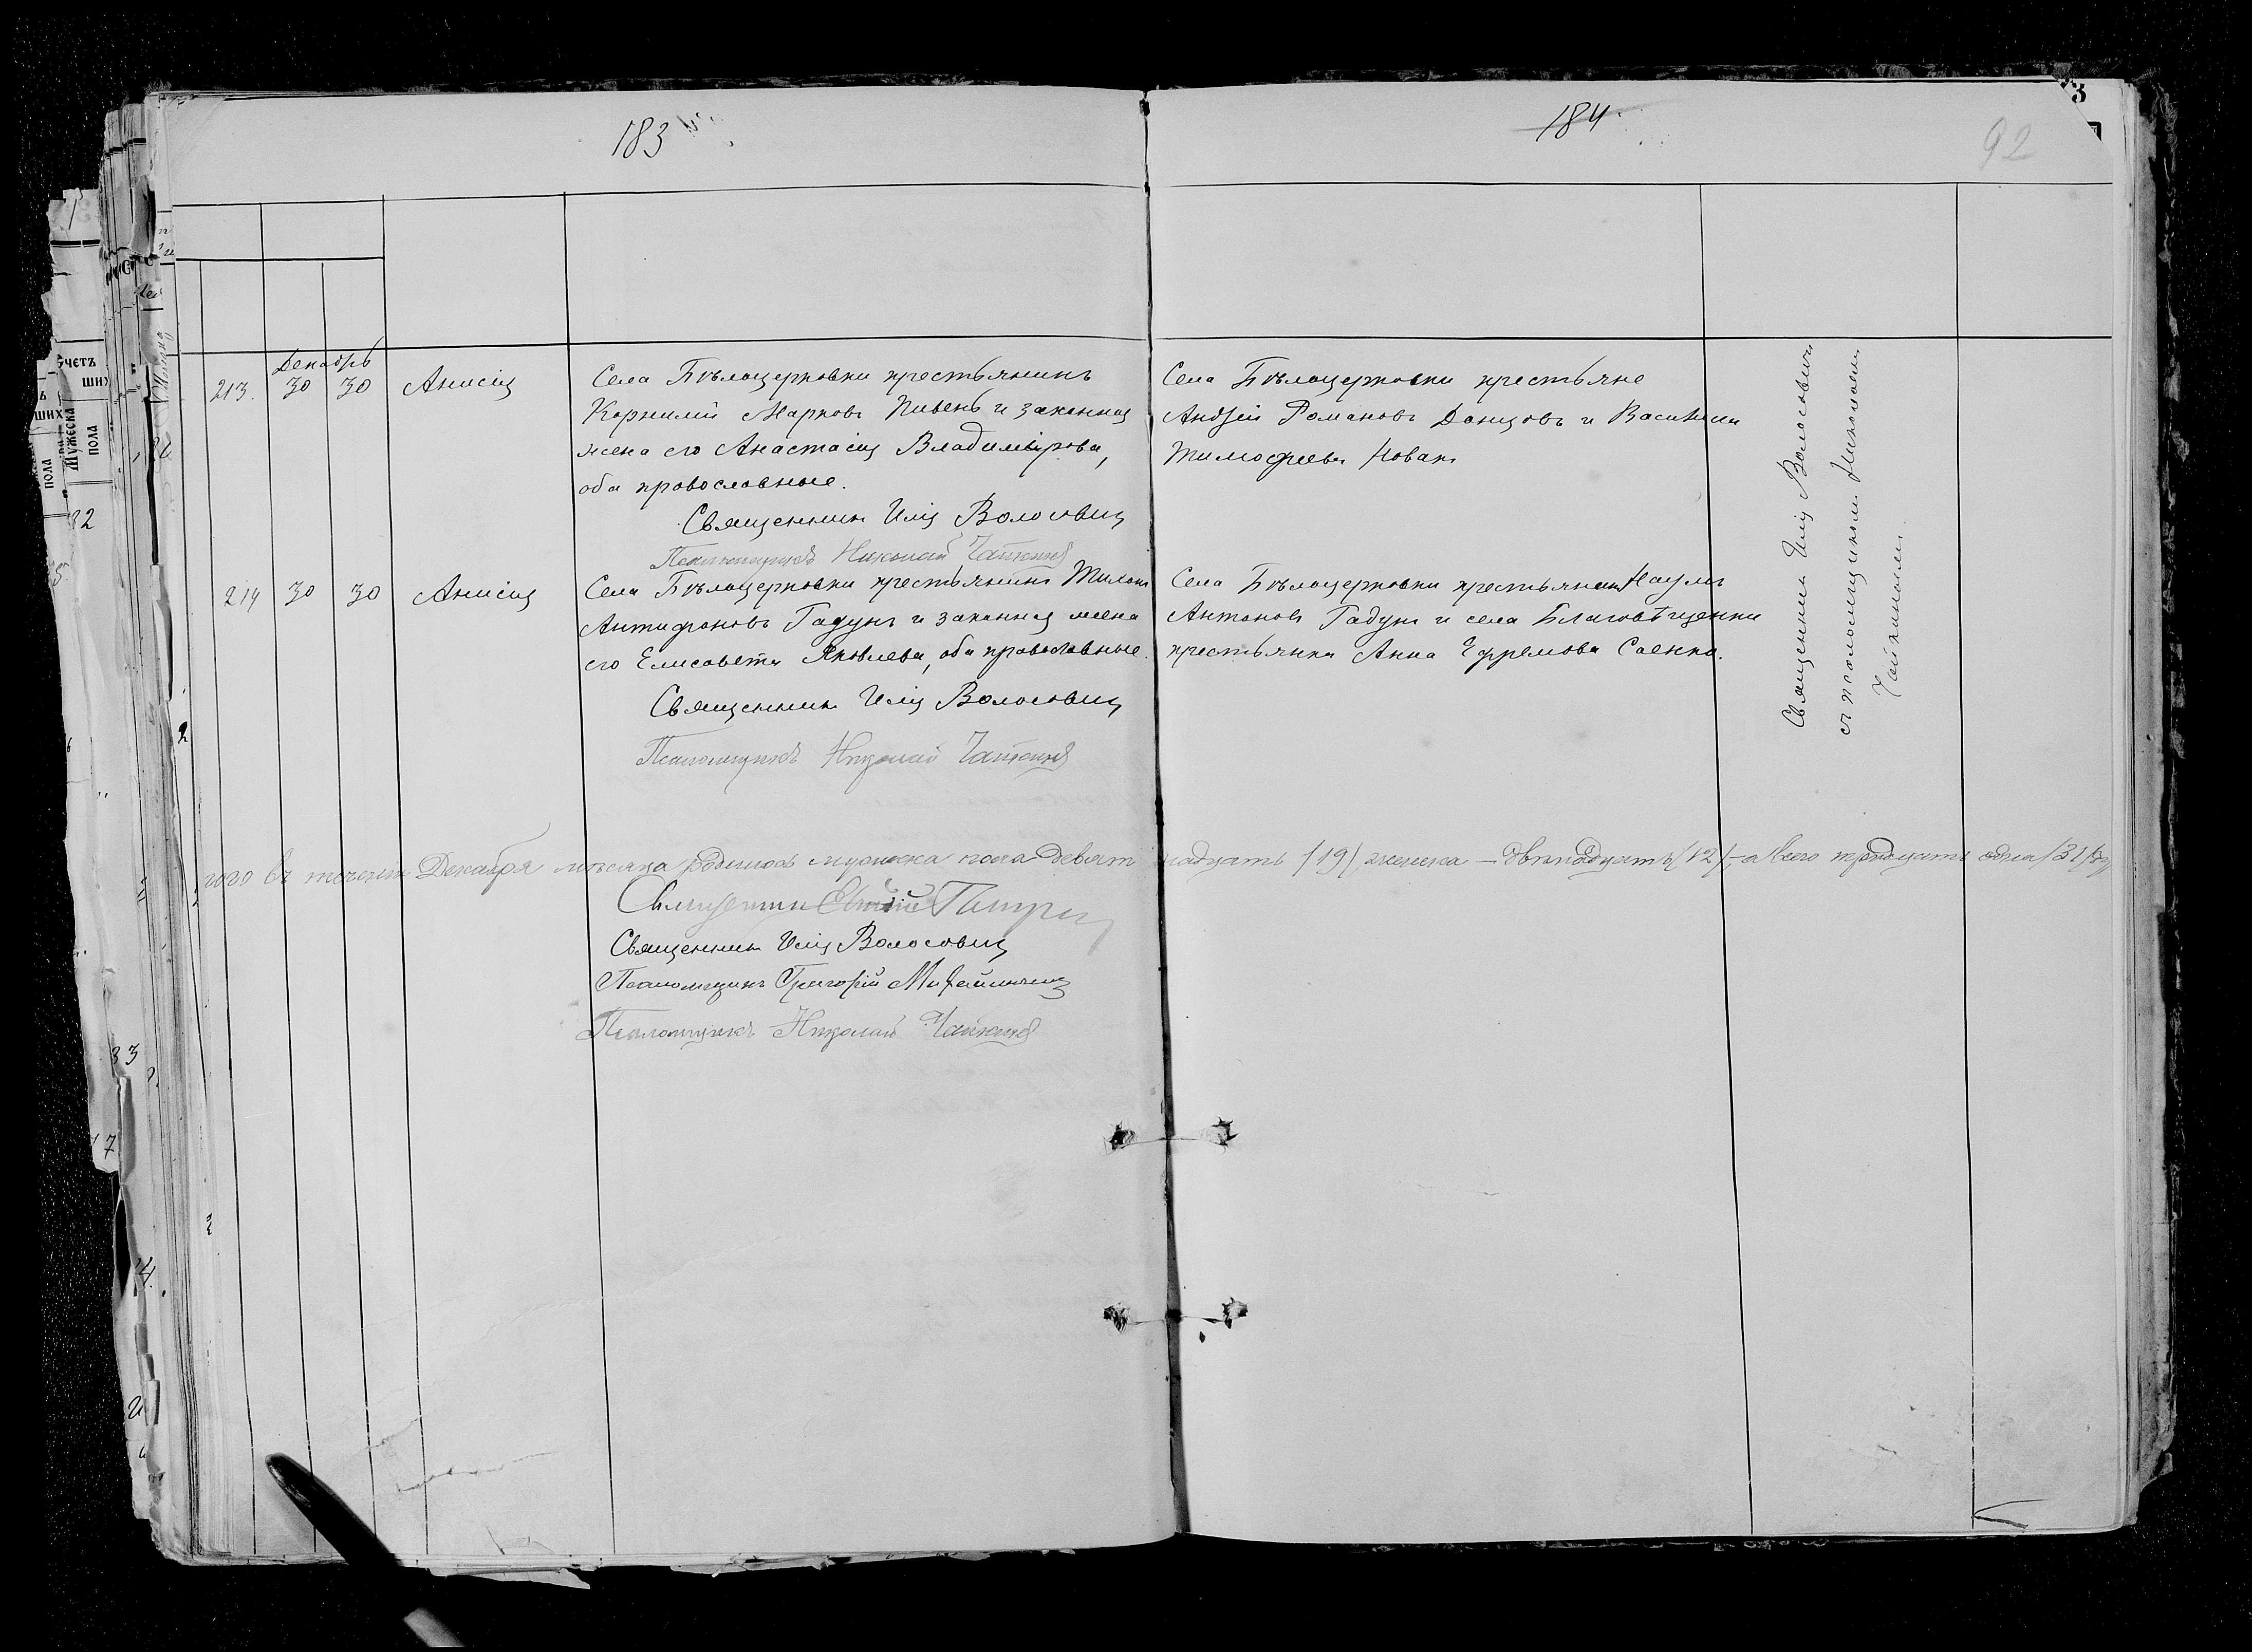 183
184
92
3
Декабрь
213. 30 30 Анисія
Села Бѣлоцерковки крестьянинъ
Корнилій Марковъ Пивень и законная
жена его Анастасія Владимірова,
оба православные.
Священникъ Илія Волосовичъ
Псаломщикъ Николай Чайкинъ
Села Бѣлоцерковки крестьяне
Андрей Романовъ Донцовъ и Василиса
Тимофеева Новакъ
214 30 30 Анисія
Села Бѣлоцерковки крестьянинъ Тихонъ
Антифоновъ Гадунъ и законная жена
его Елисавета Яковлева, оба православные.
Священникъ Илія Волосовичъ
Псаломщикъ Николай Чайкинъ
Села Бѣлоцерковки крестьянинъ Наумъ
Антоновъ Гадунъ и села Благовѣщенки
крестьянка Анна Ефремова Саенко.
Священникъ Илія Волосовичъ
съ псаломщикомъ Николаемъ
Чайкинымъ.
того въ теченіи Декабря мѣсяца родилось мужеска пола девятнадцать (19), женска – двѣнадцать (12), – а всего тридцать одна (31)
Священникъ
Священникъ Илія Волосовичъ
Псаломщикъ Григорій
Псаломщикъ Николай Чайкинъ
счетъ
ших
Мужеска
пола
пола